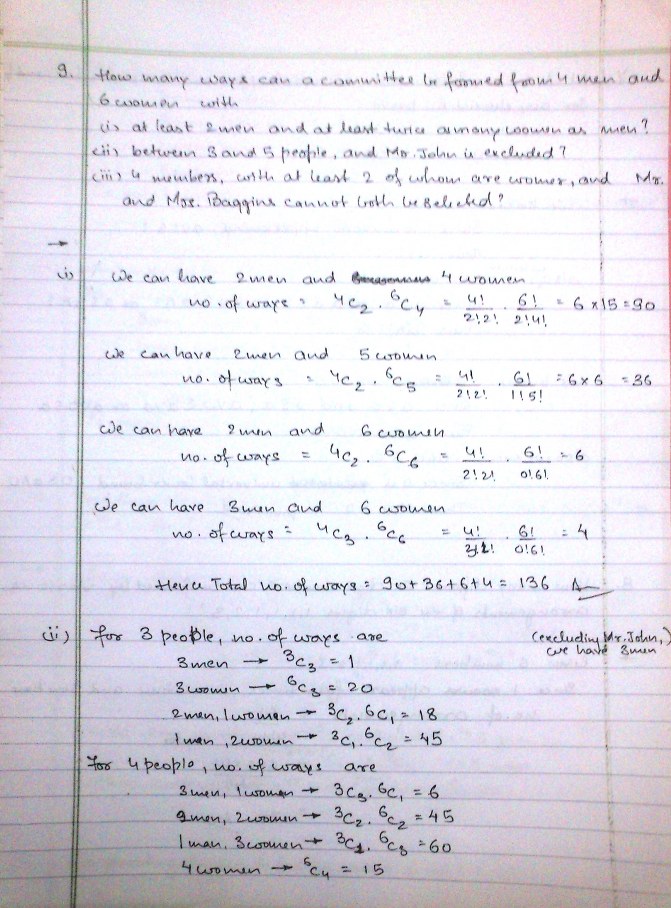 9. How many ways can a committee be formed from 4 men and
6 women with
(i) at least 2 men and at least twice as many women as men?
(ii) between 3 and 5 people, and Mr. John is excluded?
(iii) 4 members, with at least 2 of whom are women, and Mr.
and Mrs. Baggins cannot both be selected?
→
(i) We can have 2 men and 4 women
no. of ways = ⁴C₂ . ⁶C₄ = 4!/2!2! . 6!/2!4! = 6 x 15 = 90
We can have 2 men and 5 women
no. of ways = ⁴C₂ . ⁶C₅ = 4!/2!2! . 6!/1!5! = 6 x 6 = 36
We can have 2 men and 6 women
no. of ways = ⁴C₂ . ⁶C₆ = 4!/2!2! . 6!/0!6! = 6
We can have 3 men and 6 women
no. of ways = ⁴C₃ . ⁶C₆ = 4!/3!1! . 6!/0!6! = 4
Hence Total no. of ways = 90 + 36 + 6 + 4 = 136 A
(ii) for 3 people, no. of ways are (excluding Mr. John,)
we have 3 men
3 men → ³C₃ = 1
3 women → ⁶C₃ = 20
2 men, 1 women → ³C₂ . 6C₁ = 18
1 man, 2 women → ³C₁ . ⁶C₂ = 45
For 4 people, no. of ways are
3 men, 1 woman → 3C₃ . ⁶C₁ = 6
2 men, 2 women → ³C₂ . ⁶C₂ = 45
1 man, 3 women → ³C₁ . ⁶C₃ = 60
4 women → ⁶C₄ = 15